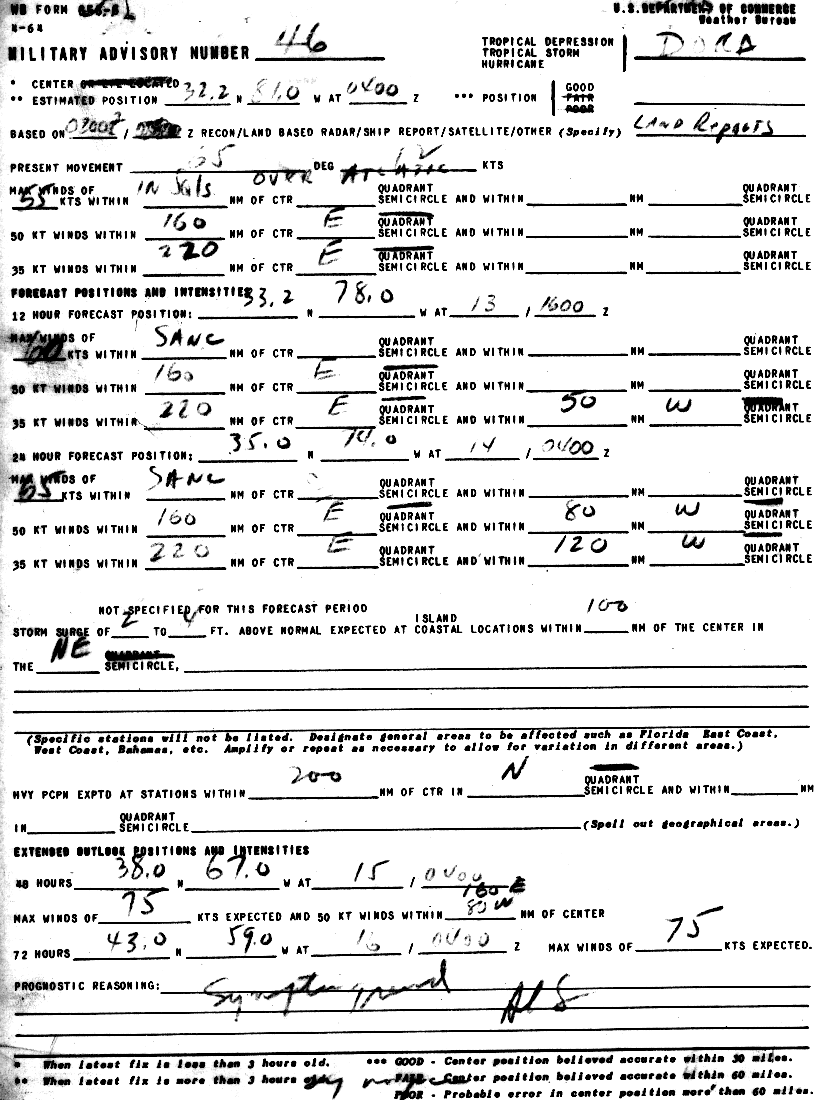 WB FORM
4-64
U.S. DEPARTMENT OF COMMERCE
Weather Bureau
MILITARY ADVISORY NUMBER 46
TROPICAL DEPRESSION
TROPICAL STORM
HURRICANE
DORA
* CENTER OR EYE LOCATED
** ESTIMATED POSITION 32.2 N 81.0 W AT 0400 Z *** POSITION GOOD FAIR POOR
BASED ON 0300Z / Z RECON/LAND BASED RADAR/SHIP REPORT/SATELLITE/OTHER (Specify) LAND Reports
PRESENT MOVEMENT 65 DEG 12 KTS
MAX WINDS OF IN Sqls OVER ATLANTIC QUADRANT QUADRANT
55 KTS WITHIN NM OF CTR SEMICIRCLE AND WITHIN NM SEMICIRCLE
160 E QUADRANT QUADRANT
50 KT WINDS WITHIN NM OF CTR SEMICIRCLE AND WITHIN NM SEMICIRCLE
220 E QUADRANT QUADRANT
35 KT WINDS WITHIN NM OF CTR SEMICIRCLE AND WITHIN NM SEMICIRCLE
FORECAST POSITIONS AND INTENSITIES
12 HOUR FORECAST POSITION: 33.2 N 78.0 W AT 13 / 1600 Z
MAX WINDS OF SAME QUADRANT QUADRANT
60 KTS WITHIN NM OF CTR SEMICIRCLE AND WITHIN NM SEMICIRCLE
160 E QUADRANT QUADRANT
50 KT WINDS WITHIN NM OF CTR SEMICIRCLE AND WITHIN NM SEMICIRCLE
220 E QUADRANT 50 W QUADRANT
35 KT WINDS WITHIN NM OF CTR SEMICIRCLE AND WITHIN NM SEMICIRCLE
24 HOUR FORECAST POSITION: 35.0 N 74.0 W AT 14 / 0400 Z
MAX WINDS OF SAME QUADRANT QUADRANT
65 KTS WITHIN NM OF CTR SEMICIRCLE AND WITHIN NM SEMICIRCLE
160 E QUADRANT 80 W QUADRANT
50 KT WINDS WITHIN NM OF CTR SEMICIRCLE AND WITHIN NM SEMICIRCLE
220 E QUADRANT 120 W QUADRANT
35 KT WINDS WITHIN NM OF CTR SEMICIRCLE AND WITHIN NM SEMICIRCLE
NOT SPECIFIED FOR THIS FORECAST PERIOD
ISLAND
STORM SURGE OF 2 TO 4 FT. ABOVE NORMAL EXPECTED AT COASTAL LOCATIONS WITHIN 100 NM OF THE CENTER IN
THE NE QUADRANT SEMICIRCLE,
(Specific stations will not be listed. Designate general areas to be affected such as Florida East Coast,
West Coast, Bahamas, etc. Amplify or repeat as necessary to allow for variation in different areas.)
HVY PCPN EXPTD AT STATIONS WITHIN 200 NM OF CTR IN N QUADRANT SEMICIRCLE AND WITHIN NM
IN QUADRANT SEMICIRCLE (Spell out geographical areas.)
EXTENDED OUTLOOK POSITIONS AND INTENSITIES
48 HOURS 38.0 N 67.0 W AT 15 / 0400
160 E
MAX WINDS OF 75 KTS EXPECTED AND 50 KT WINDS WITHIN 80 W NM OF CENTER
72 HOURS 43.0 N 59.0 W AT 16 / 0400 Z MAX WINDS OF 75 KTS EXPECTED.
PROGNOSTIC REASONING:
* When latest fix is less than 3 hours old. *** GOOD - Center position believed accurate within 30 miles.
** When latest fix is more than 3 hours FAIR - Center position believed accurate within 60 miles.
POOR - Probable error in center position more than 60 miles.